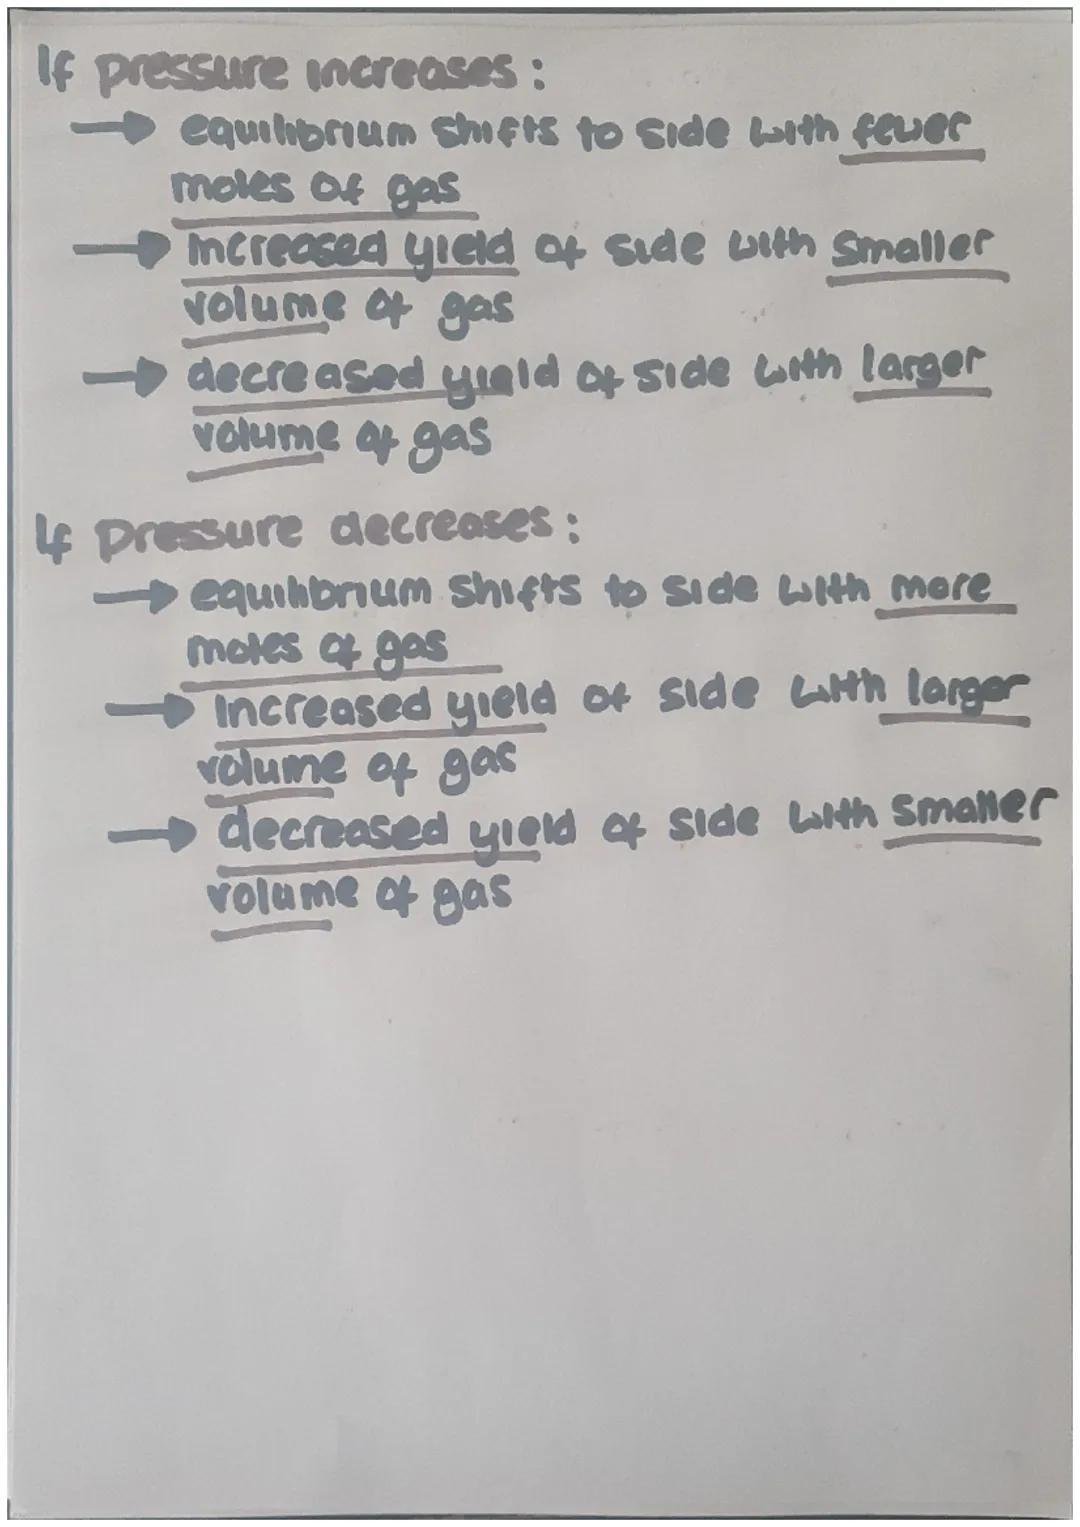 If pressure increases:
→ equilibrium shifts to side with fewer
moles of gas
→ increased yield of side with smaller
volume of gas
→ decreased yield of side with larger
volume of gas
If pressure decreases:
→ equilibrium shifts to side with more
moles of gas
→ increased yield of side with larger
volume of gas
→ decreased yield of side with smaller
volume of gas